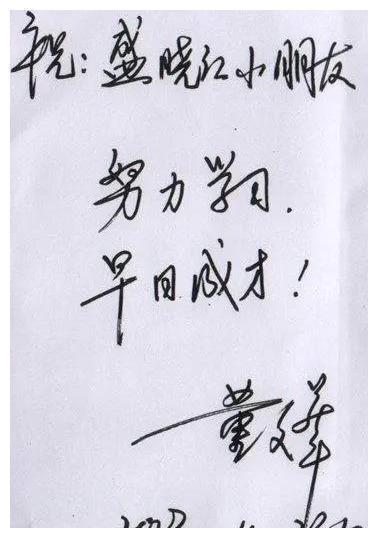 祝：盛晓江小朋友
努力学习.
早日成才！
董文华